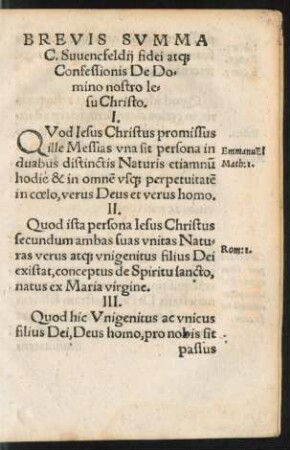 BREVIS SVMMA
C. Suuencfeldij fidei atq;
Confessionis De Do-
mino nostro Ie-
su Christo.
I.
QVod Iesus Christus promissus
ille Messias vna sit persona in
duabus distinctis Naturis etiamnū
hodie & in omnē vsq; perpetuitatē
in cœlo, verus Deus et verus homo.
Emmanuel
Math: 1.
II.
Quod ista persona Iesus Christus
secundum ambas suas vnitas Natu-
ras verus atq; vnigenitus filius Dei
existat, conceptus de Spiritu sancto,
natus ex Maria virgine.
Rom: 1.
III.
Quod hic Vnigenitus ac vnicus
filius Dei, Deus homo, pro nobis sit
passus